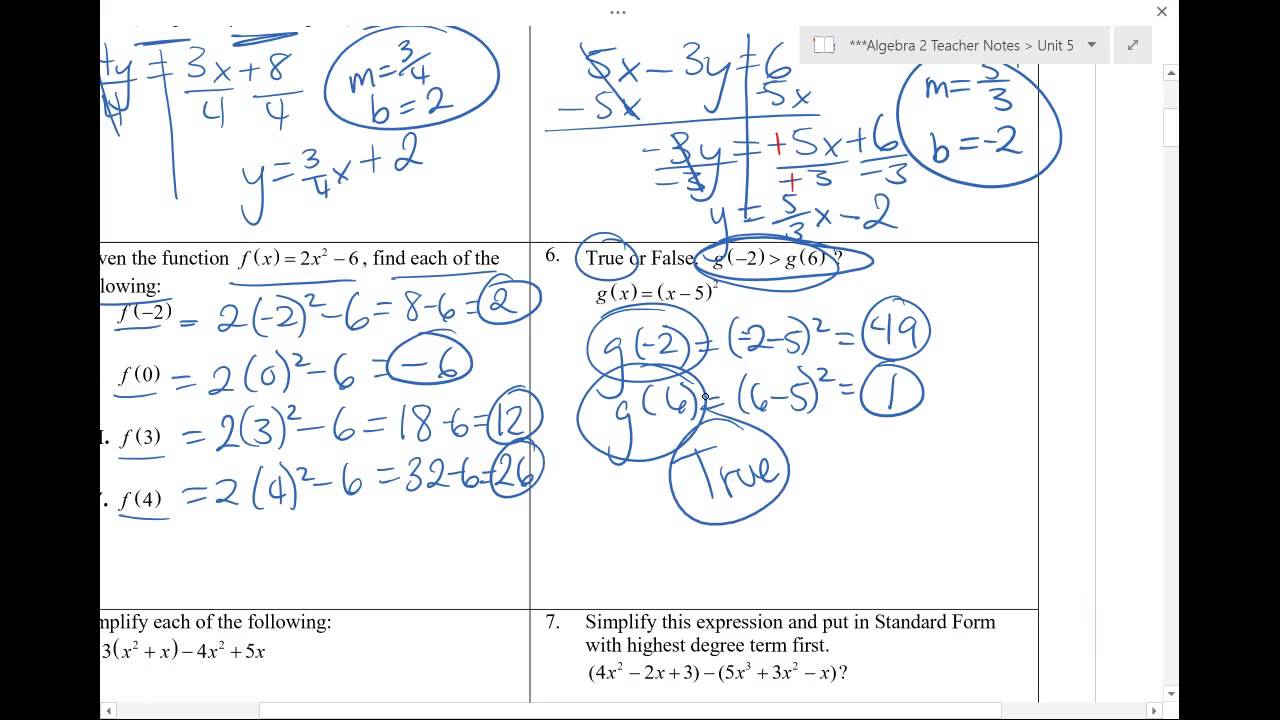 ***Algebra 2 Teacher Notes > Unit 5
4y = 3x + 8
4 4 4
m = 3/4
b = 2
y = 3/4 x + 2
5x − 3y = 6
−5x −5x
−3y = +5x + 6
−3 +3 −3
y = 5/3 x − 2
m = 5/3
b = −2
ven the function f(x) = 2x² − 6, find each of the
lowing:
f(−2) = 2(−2)² − 6 = 8 − 6 = 2
f(0) = 2(0)² − 6 = −6
I. f(3) = 2(3)² − 6 = 18 − 6 = 12
f(4) = 2(4)² − 6 = 32 − 6 = 26
6. True or False, g(−2) > g(6) ?
g(x) = (x − 5)²
g(−2) = (−2−5)² = 49
g(6) = (6−5)² = 1
True
mplify each of the following:
3(x² + x) − 4x² + 5x
7. Simplify this expression and put in Standard Form
with highest degree term first.
(4x² − 2x + 3) − (5x³ + 3x² − x)?